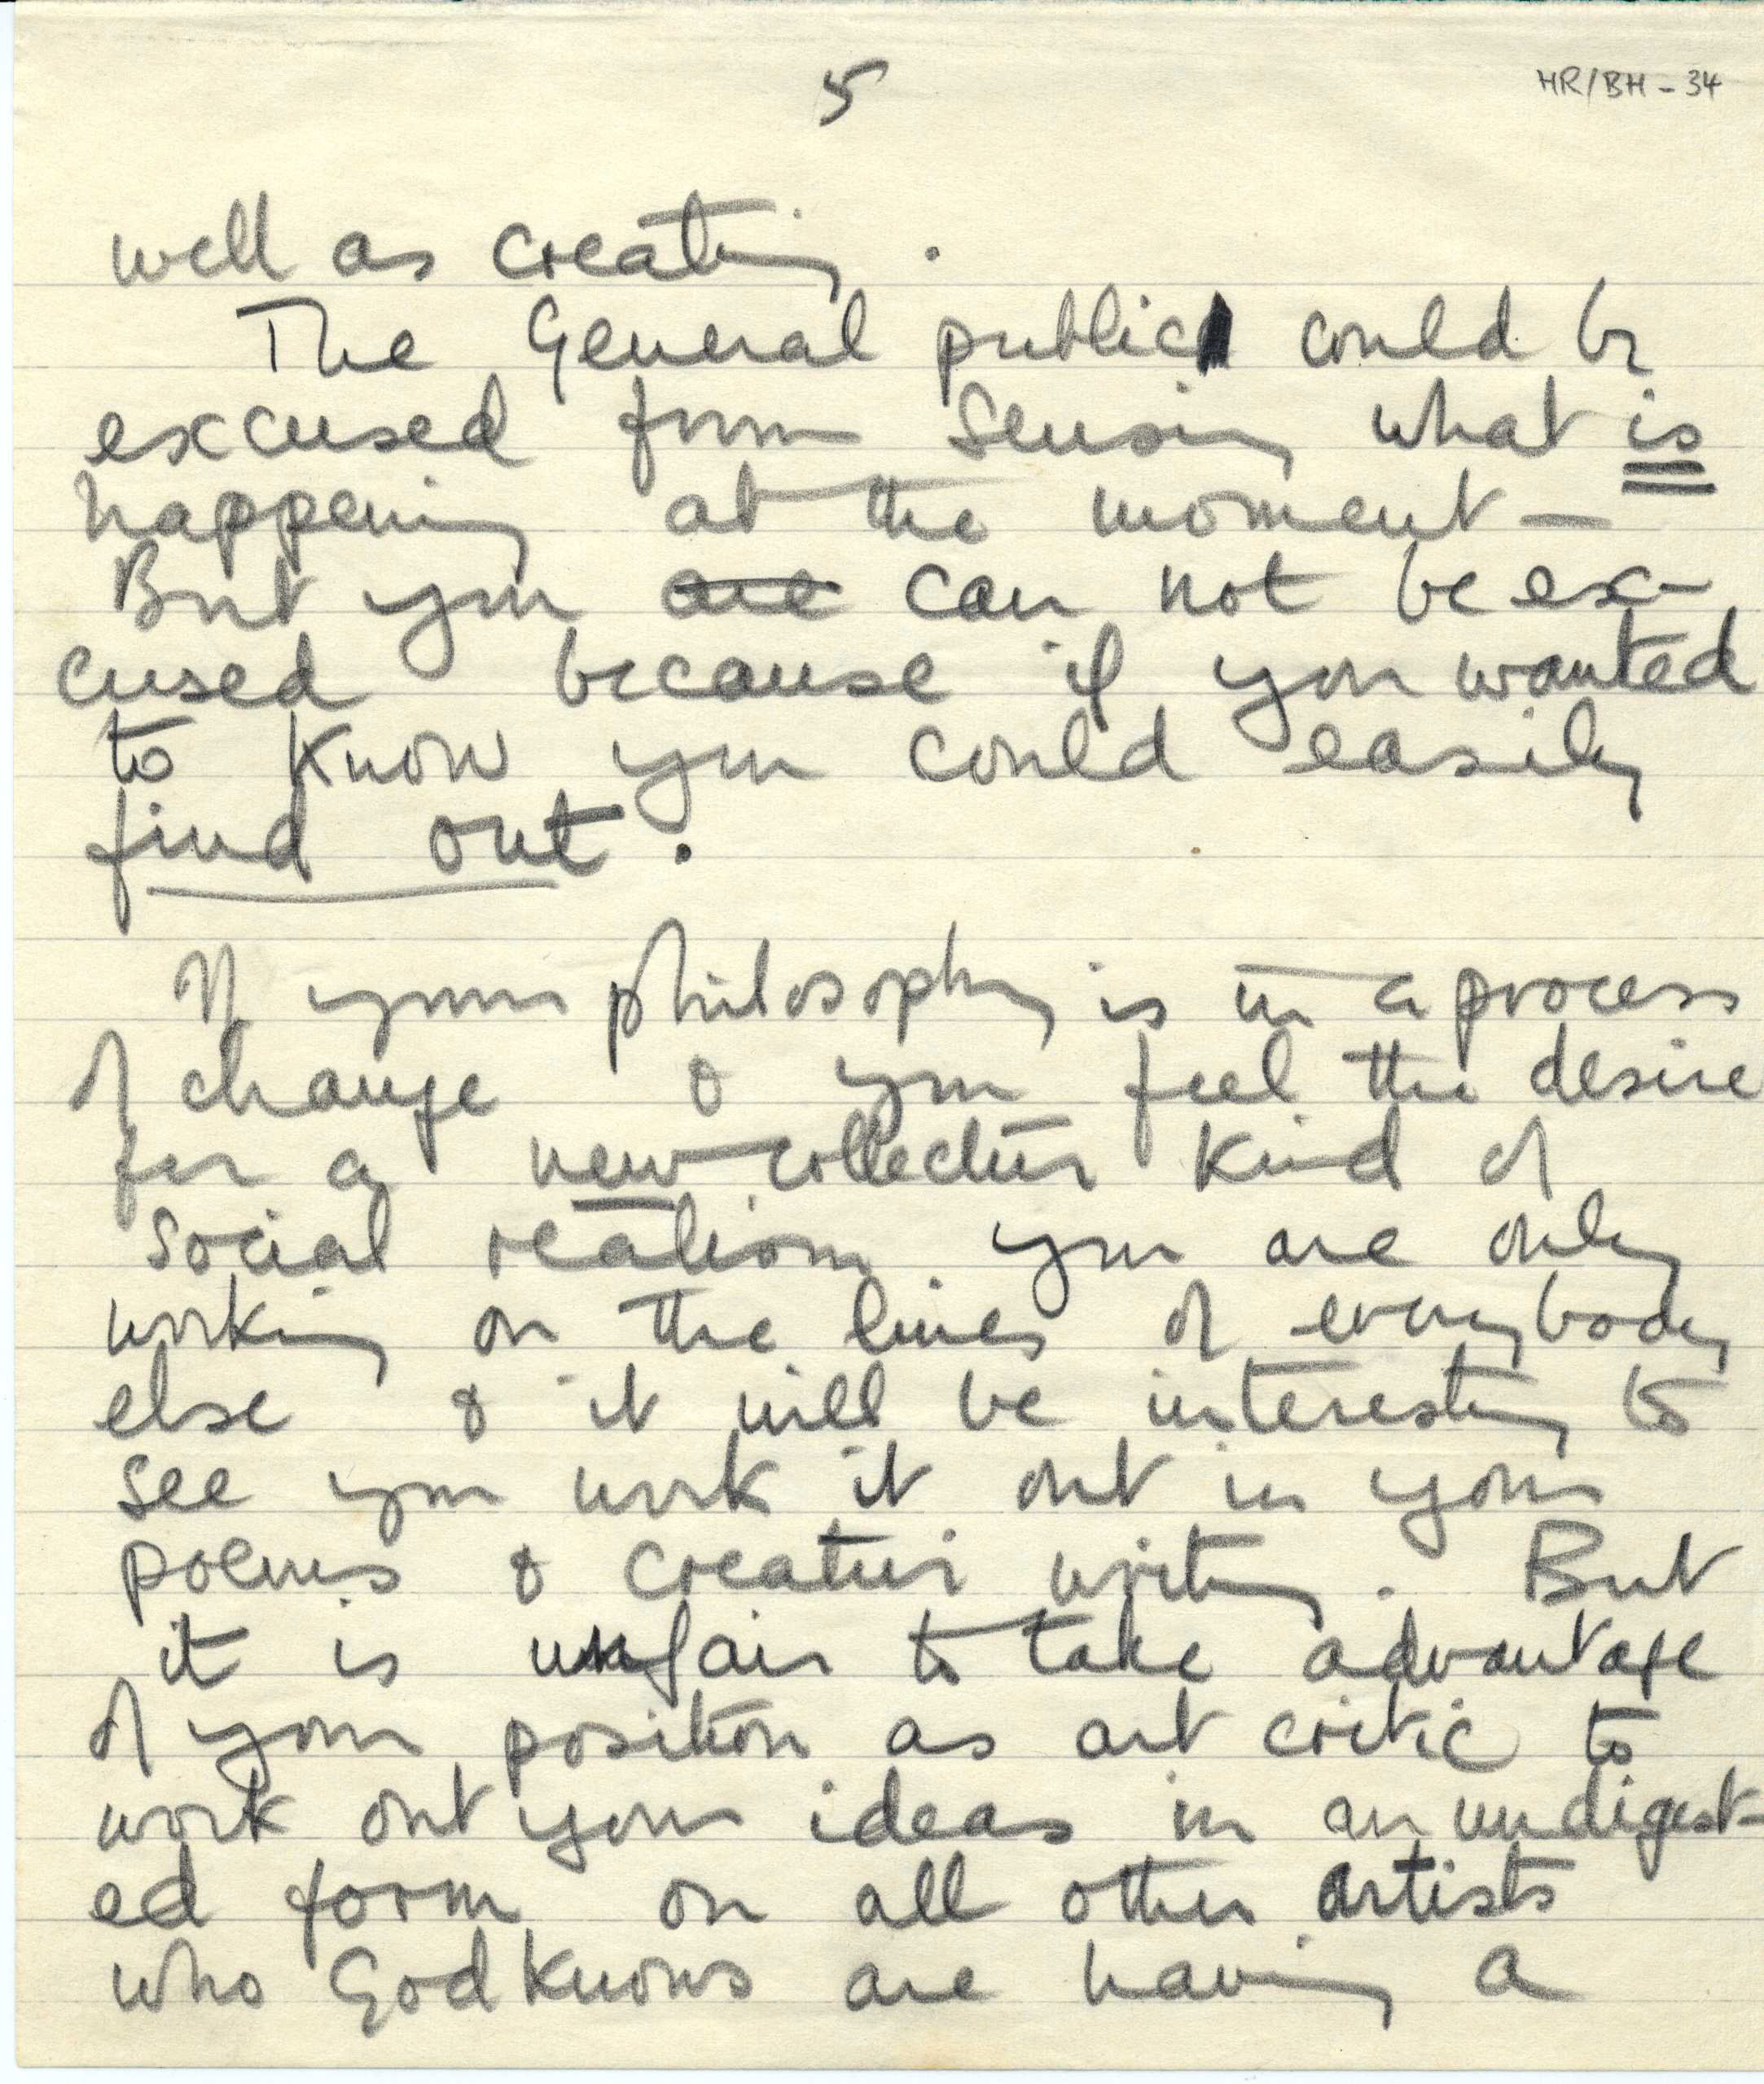 5
HR/BH - 34
well as creating.
The General public could be
excused from sensing what is
happening at the moment —
But you are can not be ex-
cused because if you wanted
to know you could easily
find out.
If your philosophy is in a process
of change & you feel the desire
for a new collective kind of
social realism you are only
working on the lines of everybody
else & it will be interesting to
see you work it out in your
poems & creative writing. But
it is unfair to take advantage
of your position as art critic to
work out your ideas in an undigest-
ed form on all other artists
who God knows are having a